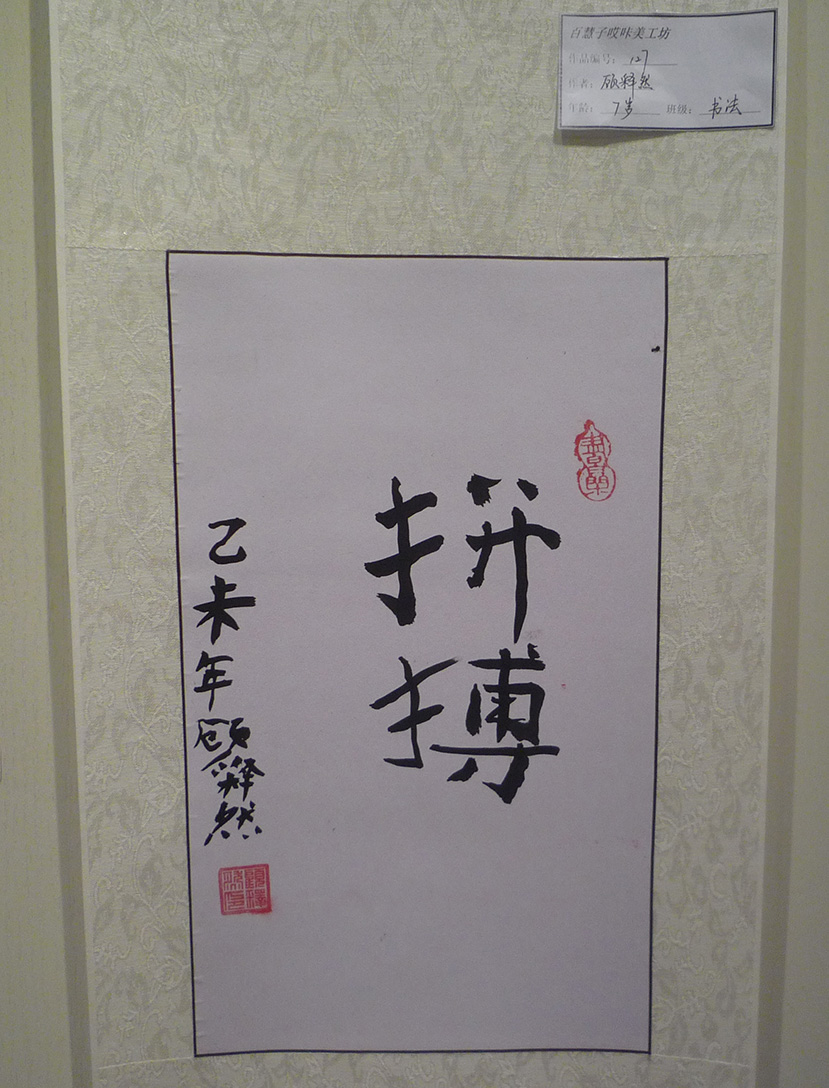 百慧子哎咔美工坊
作品编号：127
作者：顾释然
年龄：7岁 班级：书法
拼搏
乙未年顾释然